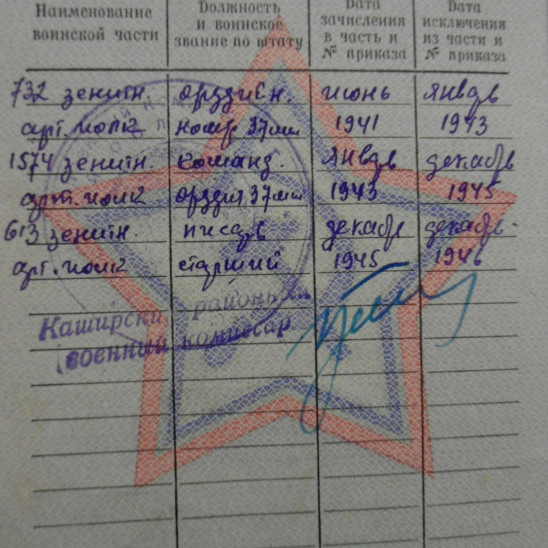 Наименование воинской части
Должность и воинское звание по штату
Дата зачисления в часть и № приказа
Дата исключения из части и № приказа
732 зенитн. орудийн. июнь январь
арт. полк номер 37мм 1941 1943
1574 зенитн. команд. январь декабрь
арт. полк орудия 37мм 1943 1945
613 зенитн. писарь декабрь декабрь
арт. полк старший 1945 1946
Каширский районный
военный комиссар